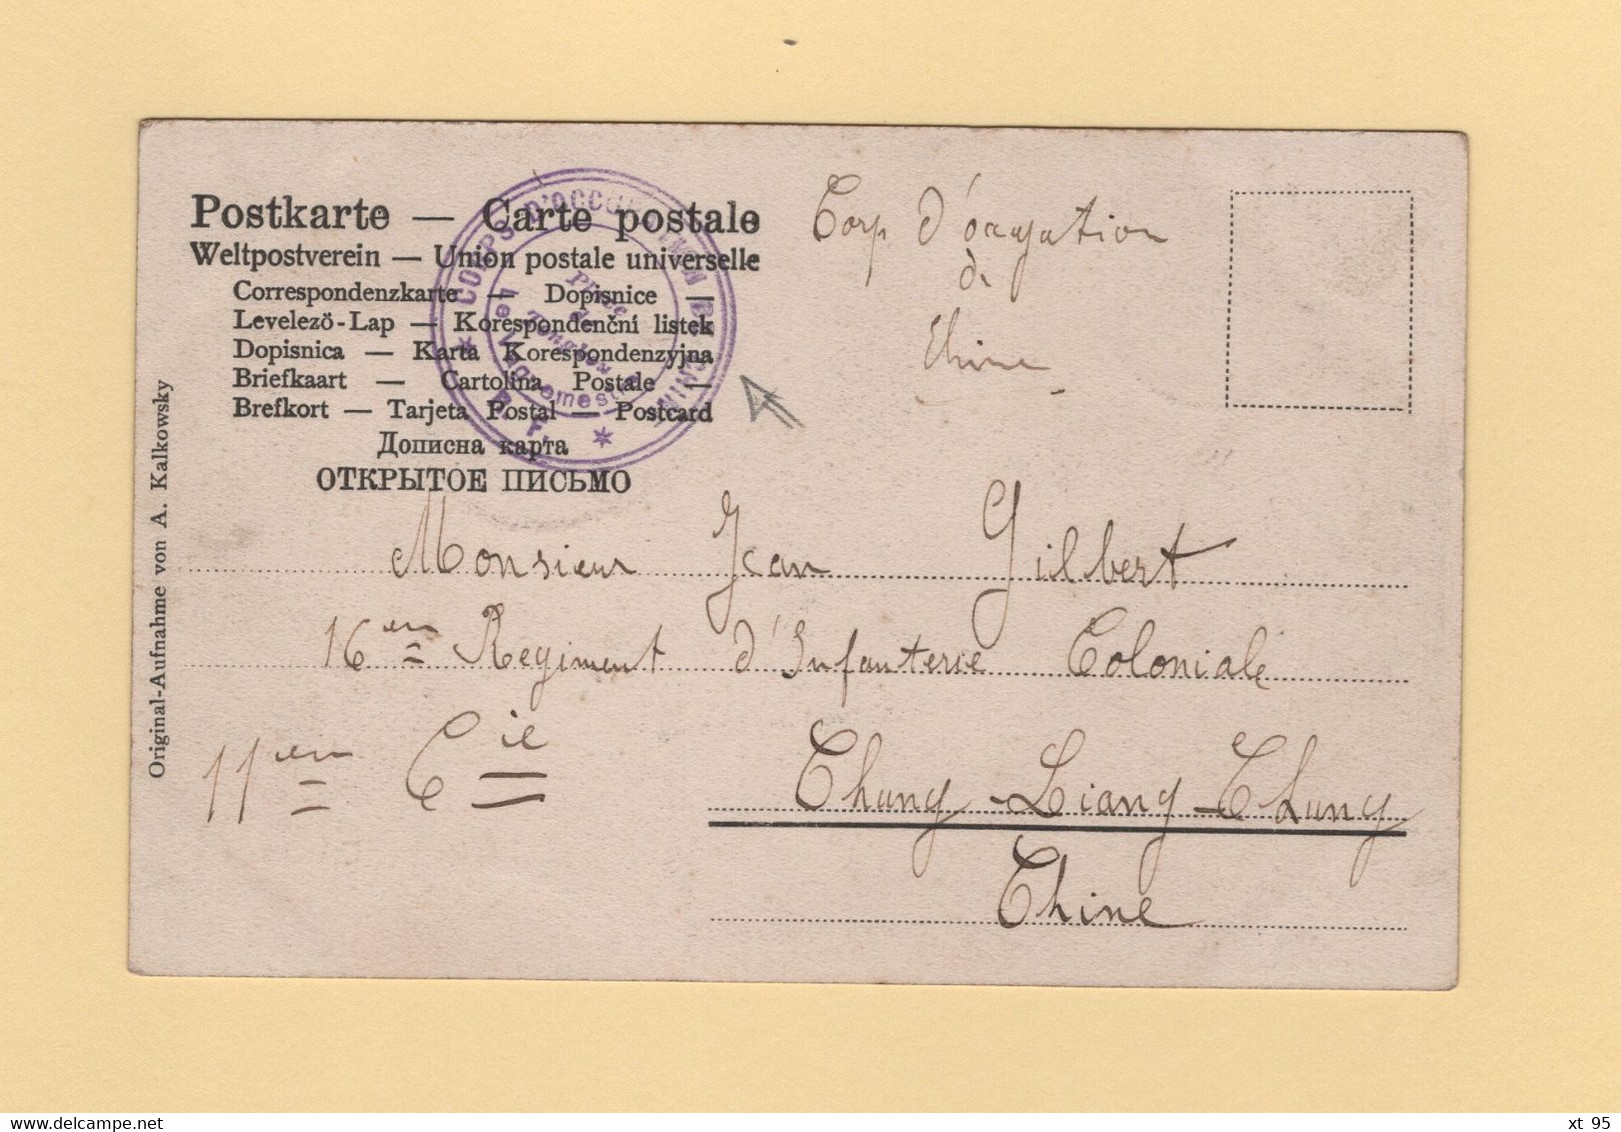 Postkarte — Carte postale
Weltpostverein — Union postale universelle
Correspondenzkarte — Dopisnice —
Levelező-Lap — Korespondenční listek
Dopisnica — Karta Korespondenzyjna
Briefkaart — Cartolina Postale —
Brefkort — Tarjeta Postal — Postcard
Дописна карта
ОТКРЫТОЕ ПИСЬМО
CORPS D'OCCUPATION DE CHINE
Place
de
Tongkou
Le Vaguemestre
Corp. d'ocupation
de
Chine
Original-Aufnahme von A. Kalkowsky
Monsieur Jean Gilbert
16em Regiment d'Infanterie Coloniale
11em Cie Chung-Liang-Chung
Chine
delcampe.net
xt_95